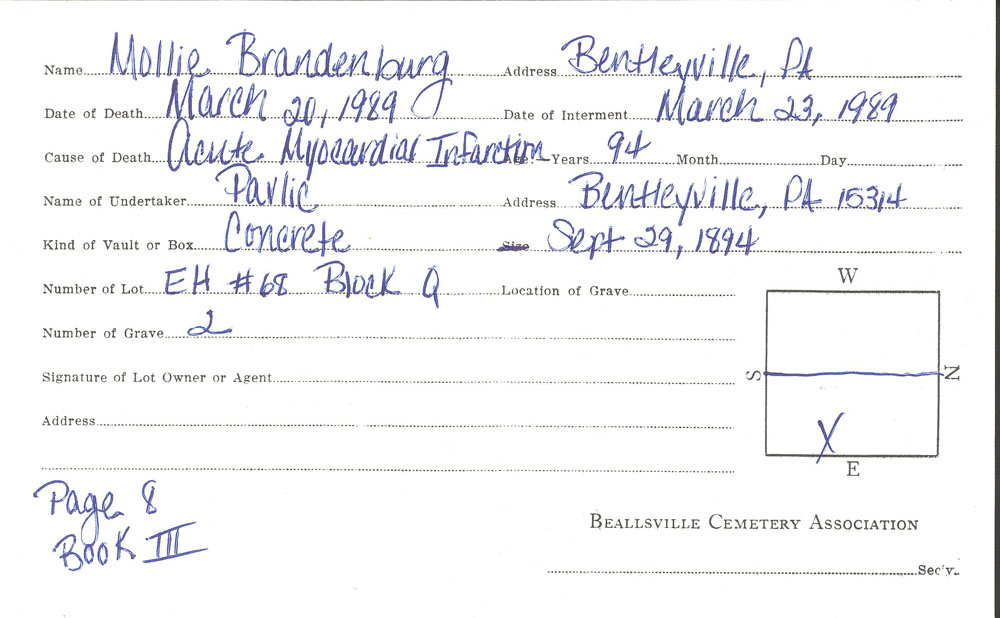 Name Mollie Brandenburg Address Bentleyville, PA
Date of Death March 20, 1989 Date of Interment March 23, 1989
Cause of Death Acute Myocardial Infarction Age Years 94 Month Day
Name of Undertaker Pavlic Address Bentleyville, PA 15314
Kind of Vault or Box Concrete Size Sept 29, 1894
Number of Lot EH #68 Block Q Location of Grave
W
Number of Grave 2
Signature of Lot Owner or Agent
S N
Address
X
E
Page 8
Book III
BEALLSVILLE CEMETERY ASSOCIATION
Sec'y.